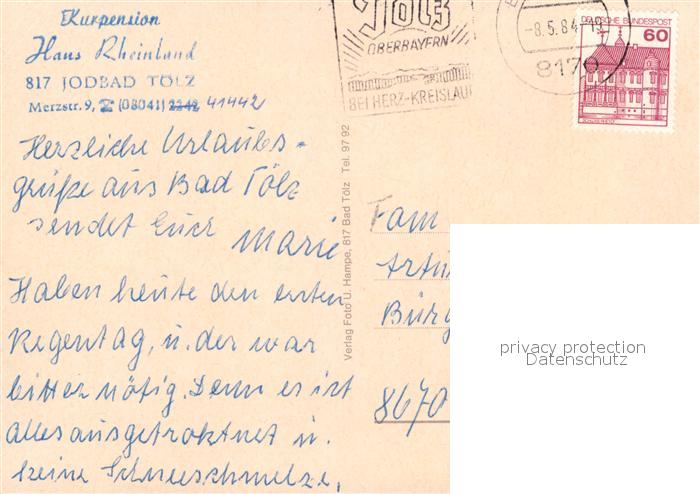 Kurpension
Hans Rheinland
817 JODBAD TÖLZ
Merzstr. 9, (08041) 2242 41442
Herzliche Urlaubs-
grüße aus Bad Tölz
sendet Euch
Marie
Haben heute den ersten
Regentag, u. der war
bitter nötig. Denn es ist
alles ausgetroknet u.
keine Schneeschmelze.
Verlag Foto U. Hampe, 817 Bad Tölz Tel. 97 92
TÖLZ
OBERBAYERN
BEI HERZ-KREISLAUF
-8.5.84-19
8170
DEUTSCHE BUNDESPOST
60
Fam
Artur
Bürg
8670
privacy protection
Datenschutz